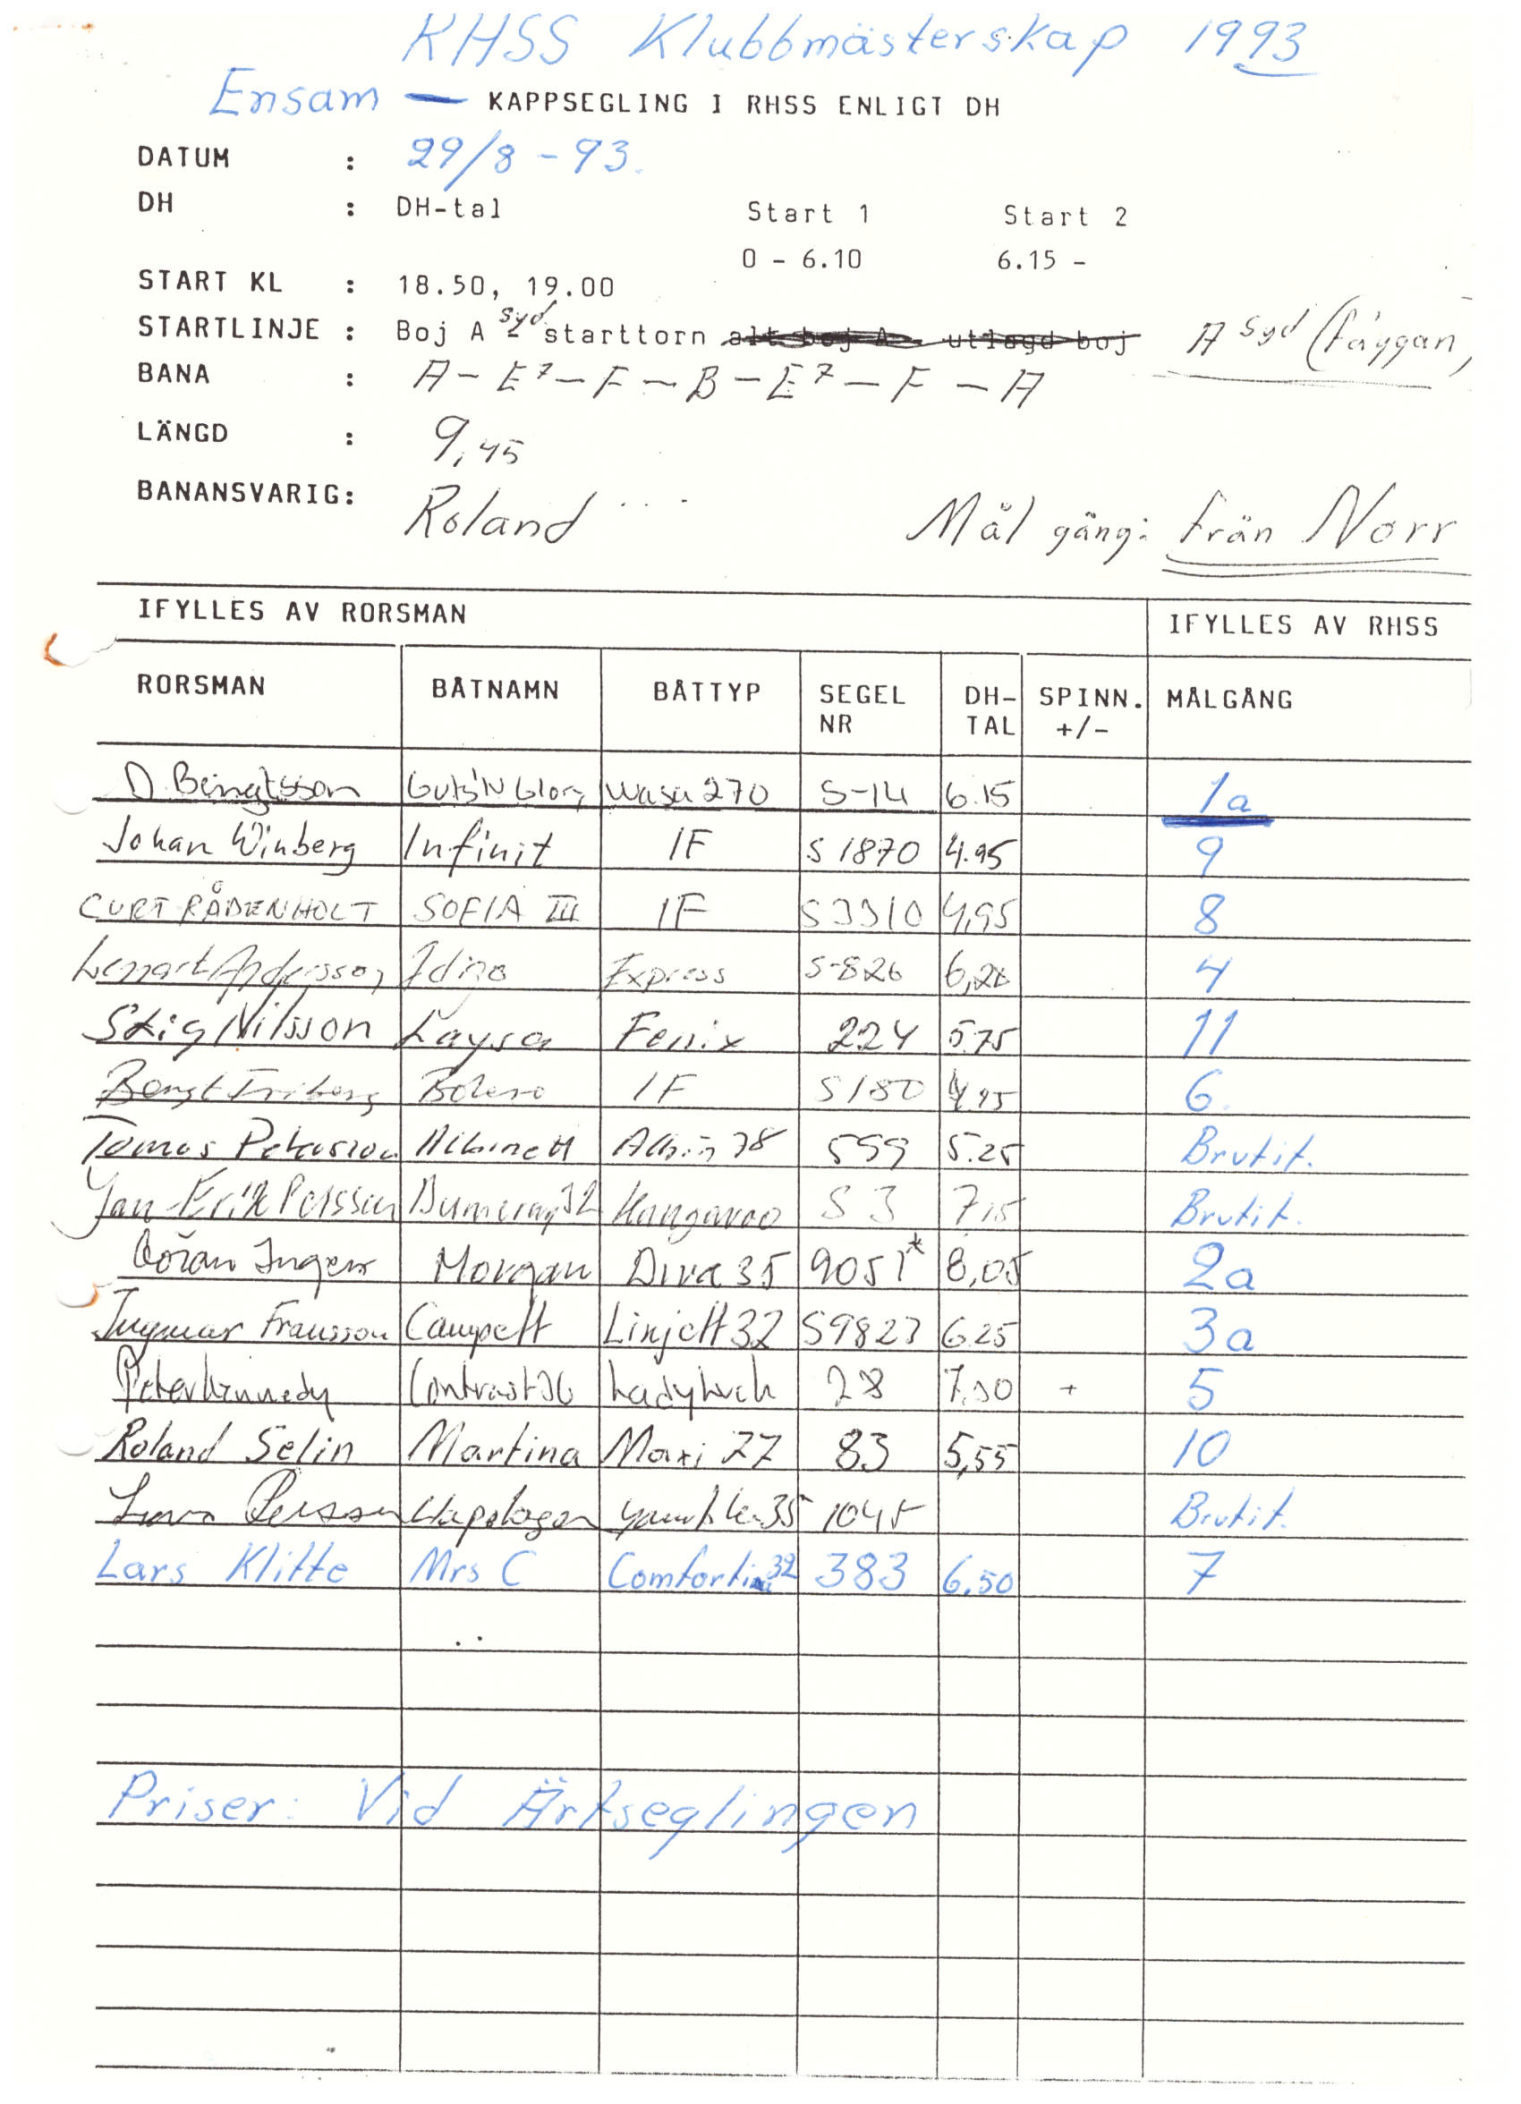 RHSS Klubbmästerskap 1993
Ensam — KAPPSEGLING I RHSS ENLIGT DH
DATUM : 29/8 - 93.
DH : DH-tal Start 1 Start 2
0 - 6.10 6.15 -
START KL : 18.50, 19.00
STARTLINJE : Boj A syd starttorn alt boj A utlagd boj A syd (Påggan)
BANA : A - E7 - F - B - E7 - F - A
LÄNGD : 9,45
BANANSVARIG: Roland Mål gång: från Norr
IFYLLES AV RORSMAN IFYLLES AV RHSS
RORSMAN BÅTNAMN BÅTTYP SEGEL NR DH-TAL SPINN. +/- MÅLGÅNG
D. Bengtsson Guts'N Glory Wasa 270 S-14 6.15 1a
Johan Winberg Infinit IF S 1870 4.95 9
CURT RÅDENHOLT SOFIA III IF S3310 4,95 8
Lennart Andersson Express S-826 4
Stig Nilsson Laysa Fenix 224 5.75 11
Bengt Friberg Bolero IF S 180 4,95 6
Tomas Petersson Albinett Albin 78 599 5.25 Brutit.
Jan Erik Persson Kangaroo S 3 7,15 Brutit.
Göran Morgan Diva 35 9051* 8,05 2a
Ingmar Fransson Campett Linjett 32 S9823 6.25 3a
Peter Kennedy Contrast 36 Ladyluck 28 + 5
Roland Selin Martina Maxi 77 83 5,55 10
Persson 35 1045 Brutit.
Lars Klitte Mrs C Comfortina 32 383 6.50 7
Priser: Vid Ärtseglingen